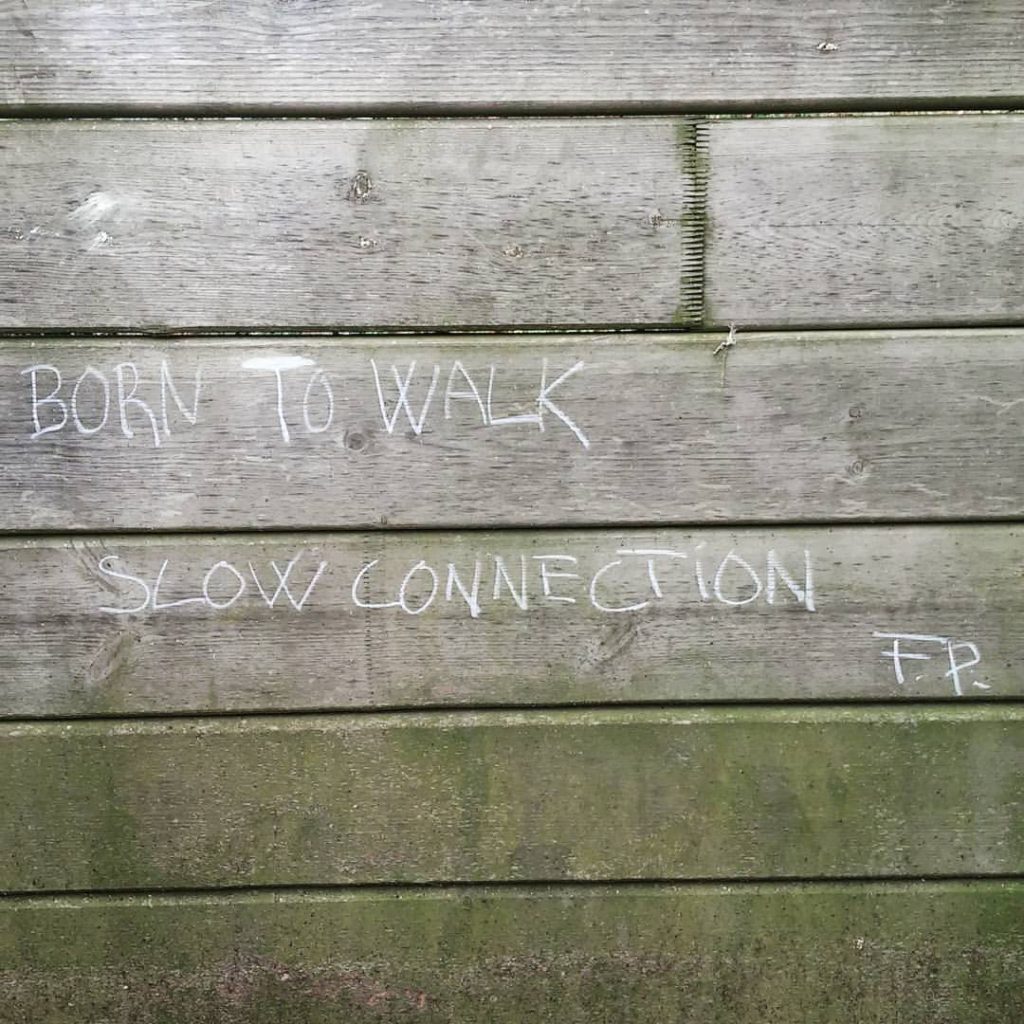 BORN TO WALK
SLOW CONNECTION
F.P.